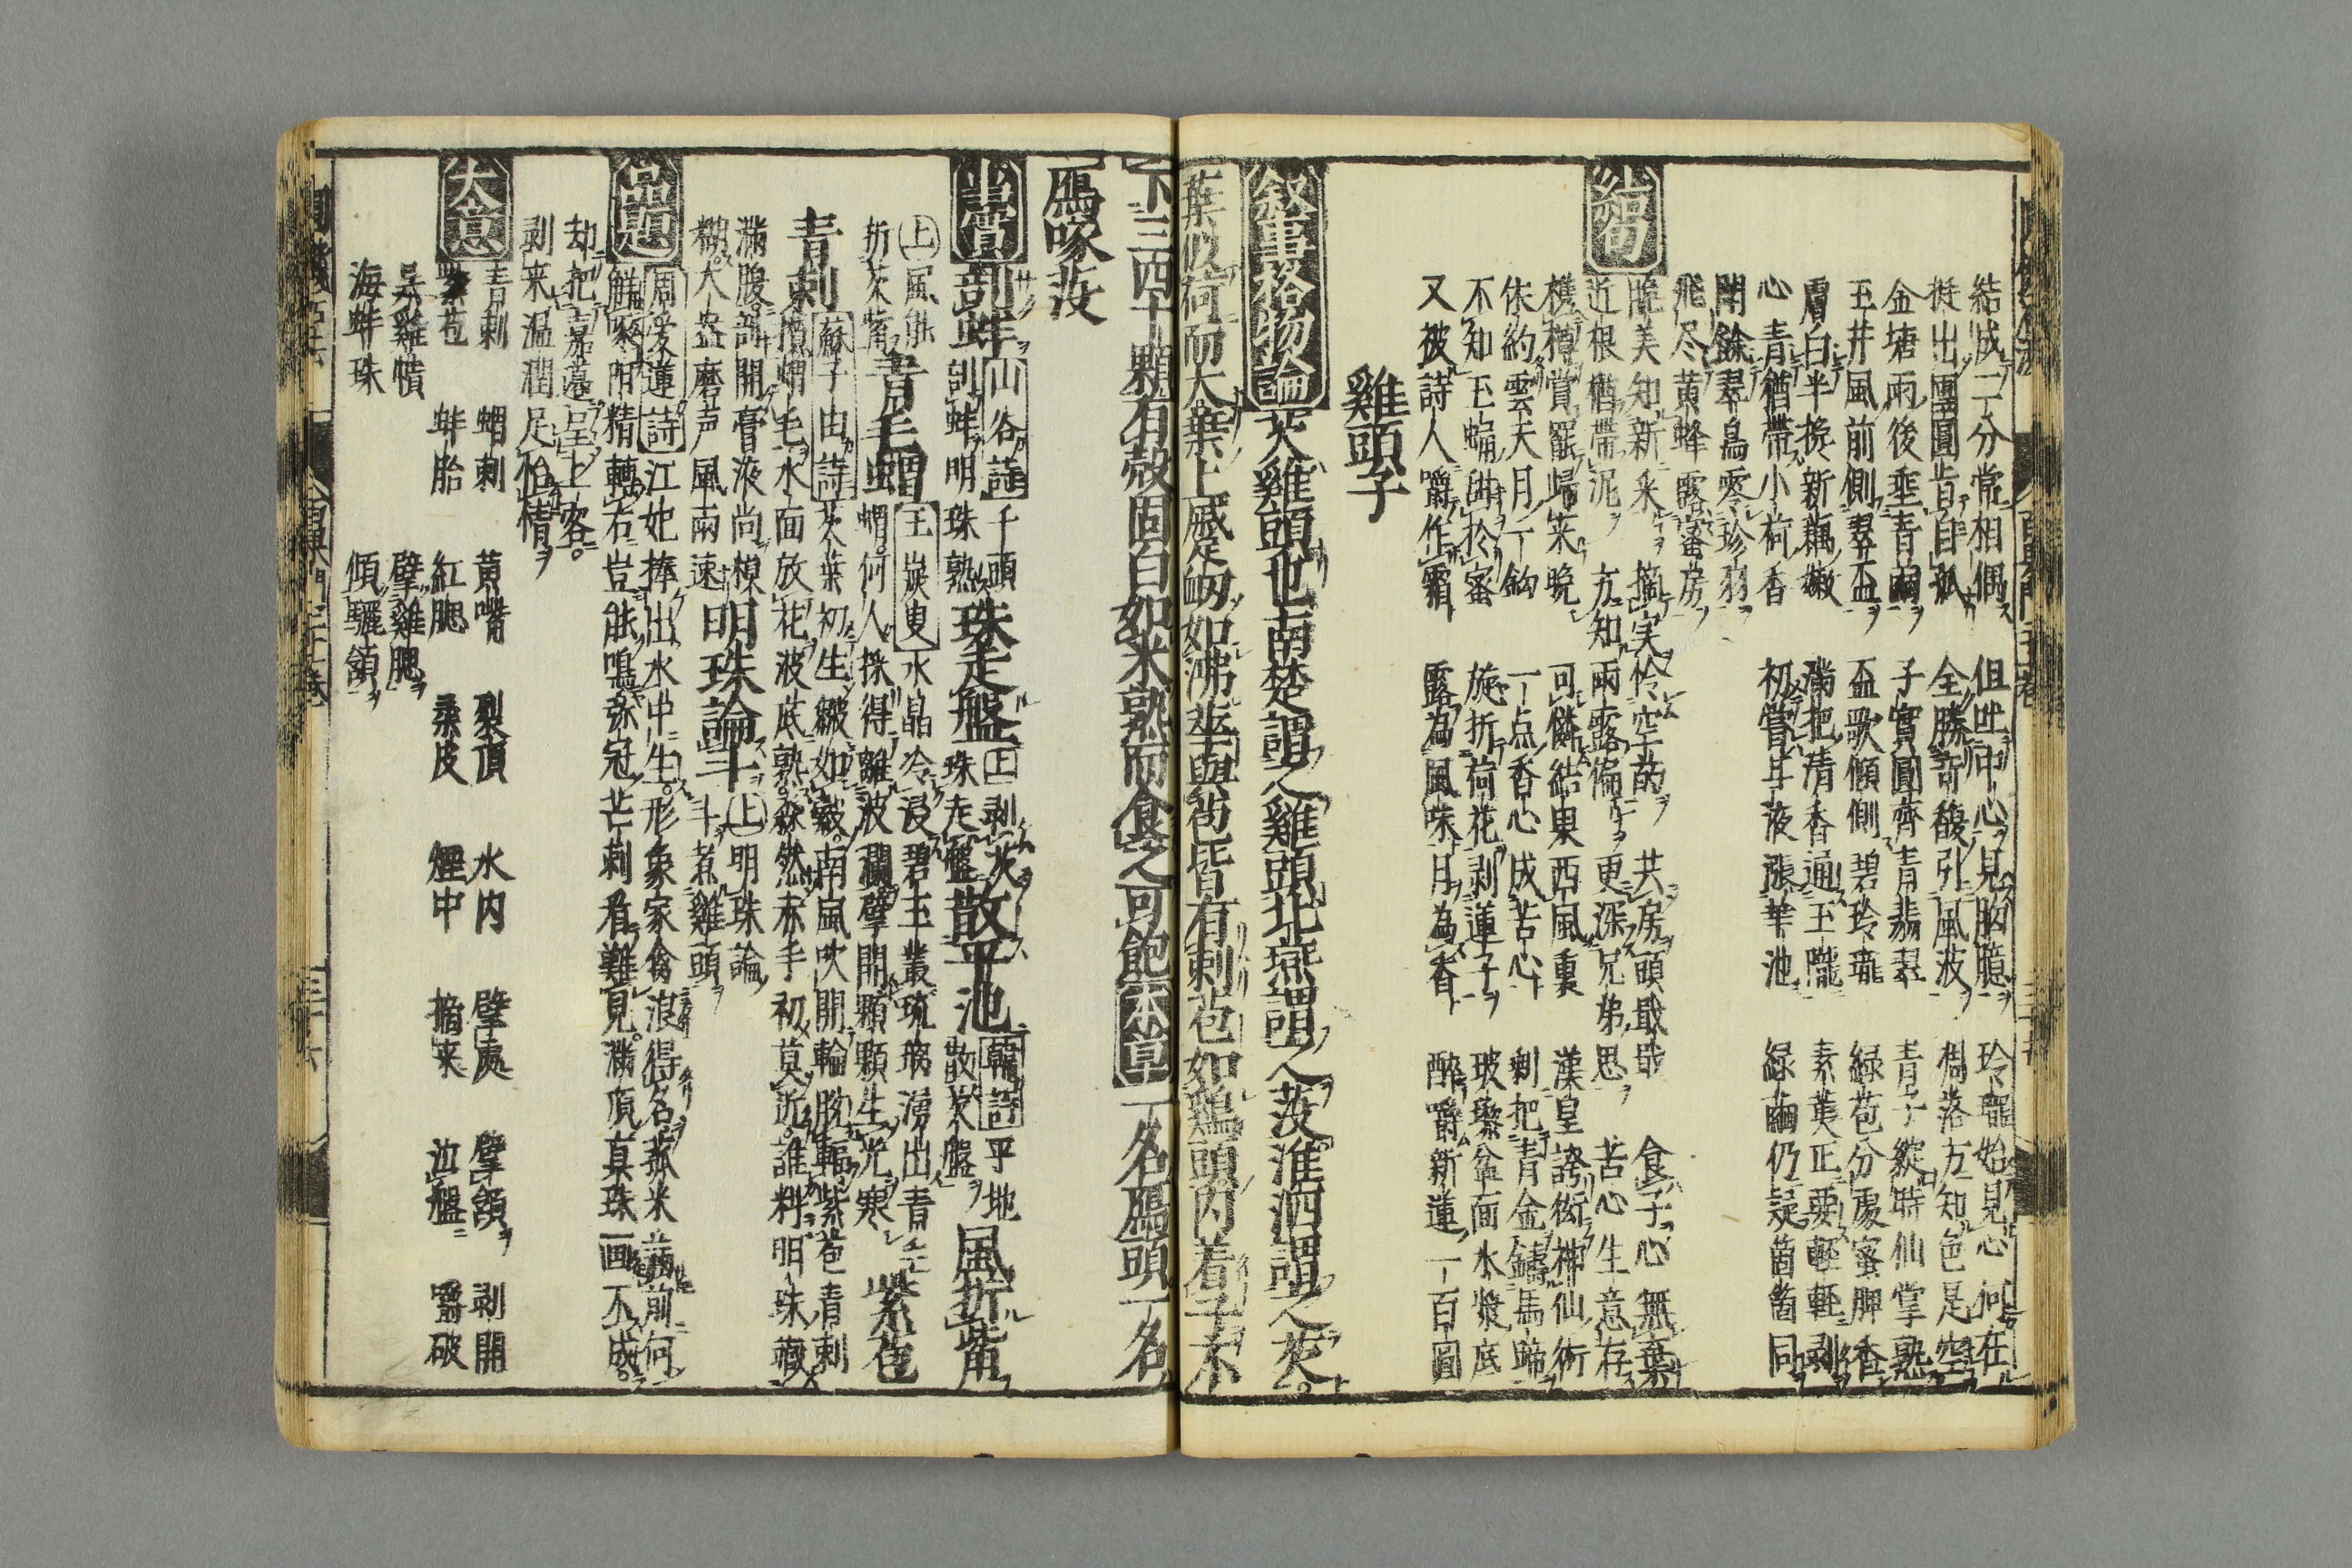 結成一分常相偶 但吐中心見胸臆 玲瓏始見心何在
挺出團圓皆自孤 全勝奇馥引風波 凋落方知色是空
金塘雨後垂青繭 子實圓齊青翡翠 青子綻時仙掌熟
玉井風前側翠盃 盃歌傾側碧玲瓏 緑苞分處蜜脾香
膚白半挽新藕嫩 滿把清香通玉隴 素葉正要輕輕剥
心青猶帶小荷香 初嘗牙液漲華池 緑繭仍疑箇箇同
閙餘翠鳥零珍羽
飛尽黄蜂露蜜房
結句
晩美知新采 摘実怜空菂 共房頭戢戢 食子心無棄
近根猶帶泥 方知雨露偏 更深兄弟思 苦心生意存
携樽賞罷歸来晩 可憐結果西風裏 漢皇誇衒神仙術
依約雲天月一鈎 一点香心成苦心 剰把青金鑄馬蹄
不知玉蛹甜於蜜 旋折荷花剥蓮子 玻瓈盆面水漿底
又被詩人嚼作霜 露為風味月為香 醉嚼新蓮一百圓
雞頭子
叙事格物論 芡雞頭也南楚謂之雞頭北燕謂之茷淮泗謂之芡
葉似荷而大葉上蹙衂如沸莖與萼皆有刺苞如鶏頭内着子不
下三四十顆有殻固白如米熟而食之可飽 本草 一名鴈頭一名
鴈喙茷
剖蚌 山谷詩 千頭剖蚌明珠熟 珠走盤 上 剥芡珠走盤 散平池 韓詩 平地散芡盤 風折觜
上 風能折芡觜 青毛蝟 王嶷叟 水晶冷浸碧玉叢琉璃湧出青毛蝟何人採得離波瀾擘開顆顆生光寒 紫苞
青刺 蘇子由詩 芡葉初生皺如縠南風吹開輪脱輻紫苞青刺
攅蝟毛水面放花波底熟森然赤手初莫近誰料明珠藏
滿腹剖開膏液尚模糊大盎磨声風雨速 明珠論斗 上 明珠論斗煮雞頭
品題 周爰蓮詩 江妃捧出水中生形象家禽浪得名菰米前何
鮮聚陽精轉石豈能鳴殄冠芒刺看難見滿頂真珠画不成
却把嘉蔈呈上客
剥来温潤足怡情
大意
青刺 蝟刺 黄嘴 裂頂 水内 擘處 擘額 剥開
紫苞 蚌胎 紅腮 柔皮 煙中 摘来 池盤 嚼破
吴雞幘 擘雞腮
海蚌珠 傾驪頷